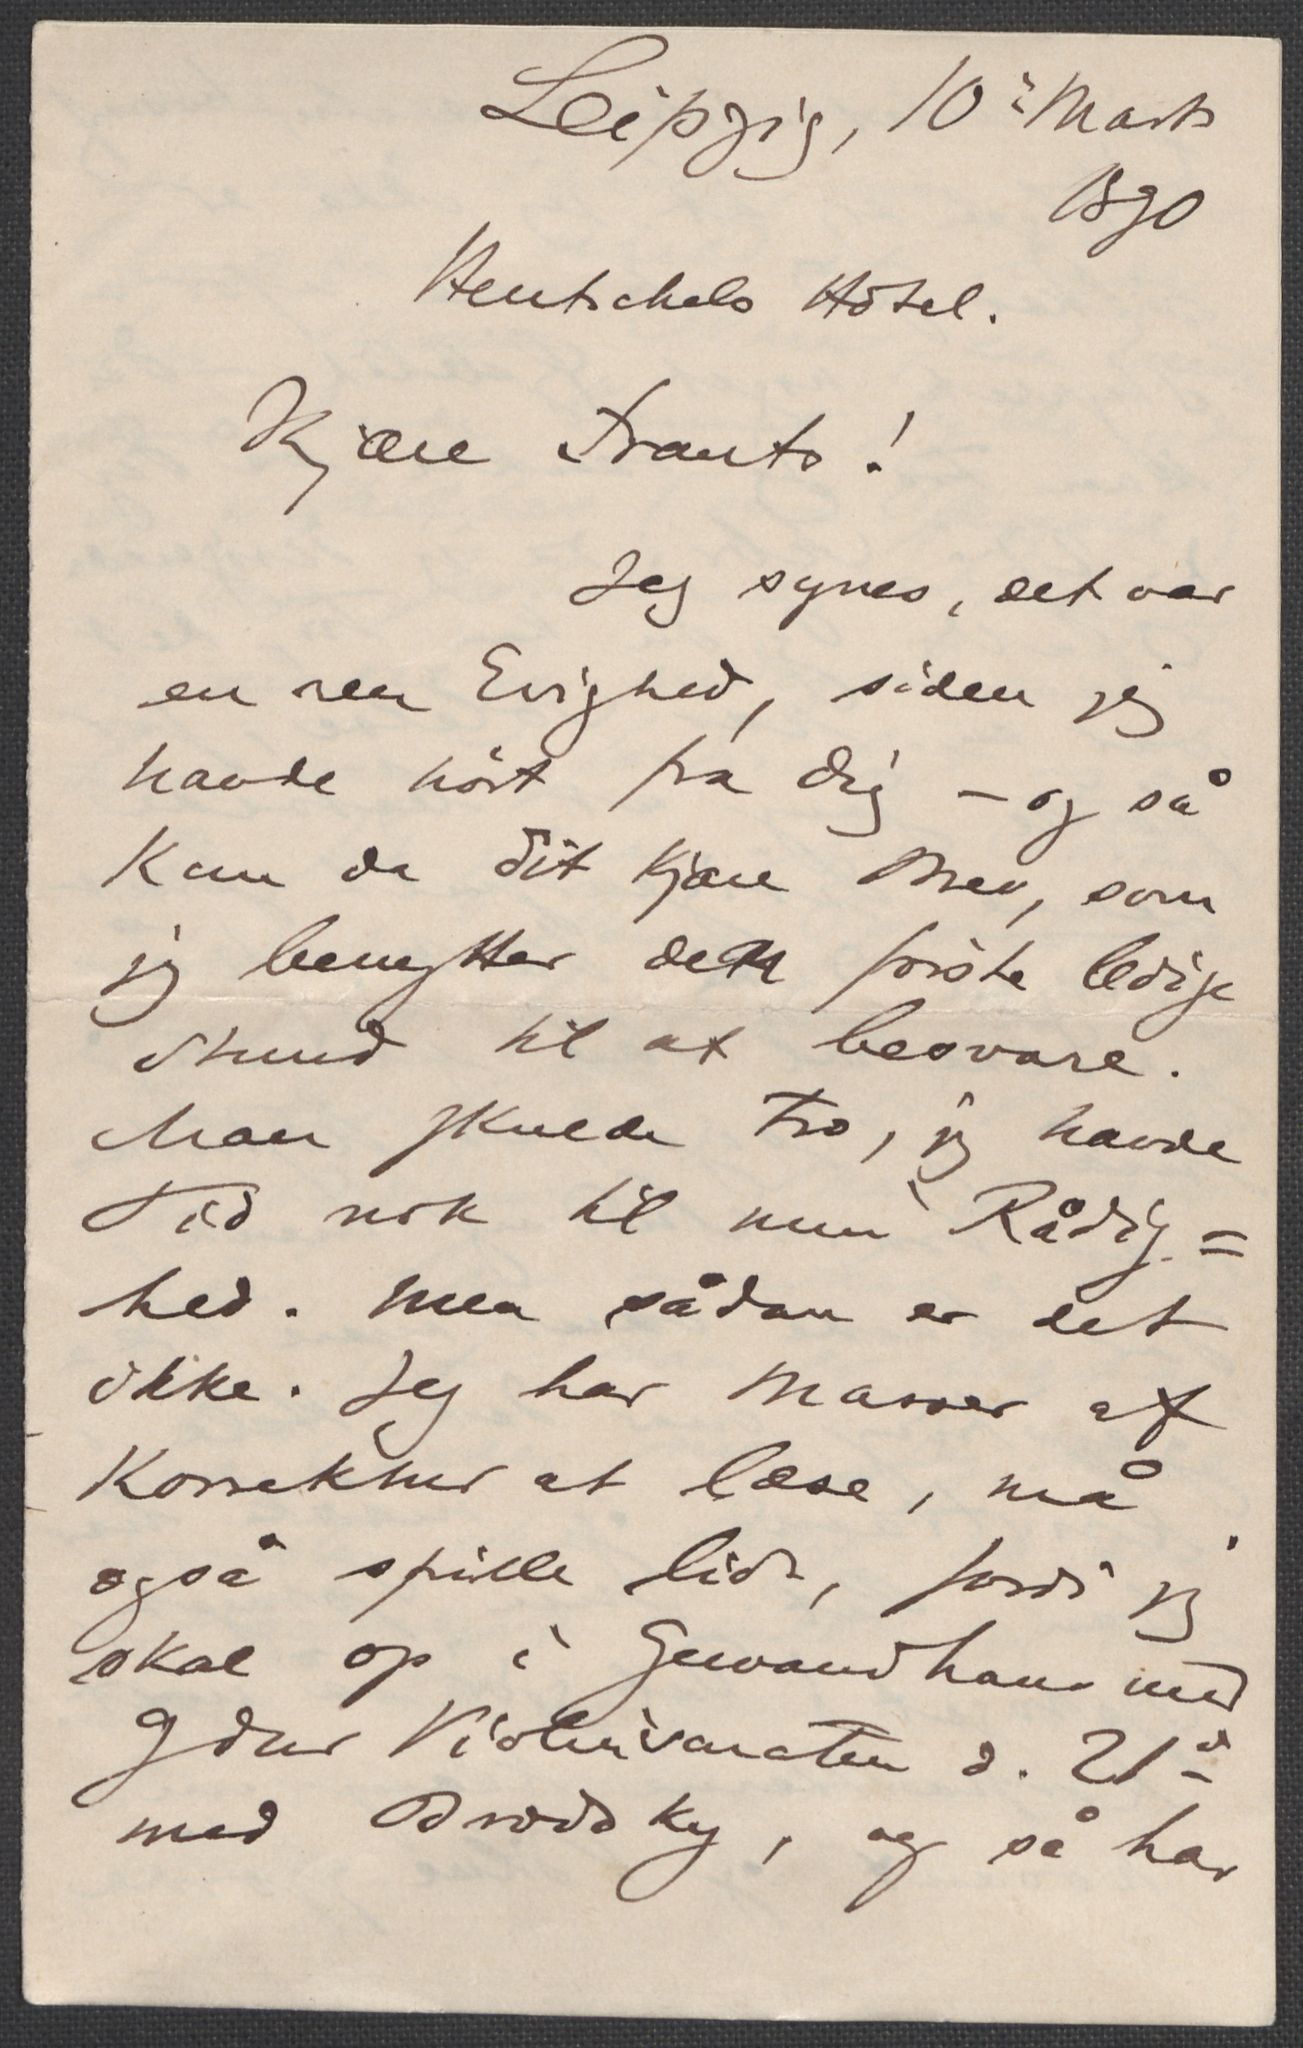 Leipzig, 10' Marts
1890
Hentschels Hôtel.
Kjære Frants!
Jeg synes, det var
en ren Evighed, siden jeg
havde hört fra dig – og så
kom da dit kjære Brev, som
jeg benytter den förste ledige
Stund til at besvare.
Man skulde tro, jeg havde
Tid nok til min Rådig=
hed. Men sådan er det
ikke. Jeg har Masser af
Korrektur at læse, må
også spille lidt, fordi jeg
skal op i Gewandhaus med
Gdur Violinsonaten d. 21'
med Brodsky, og så har